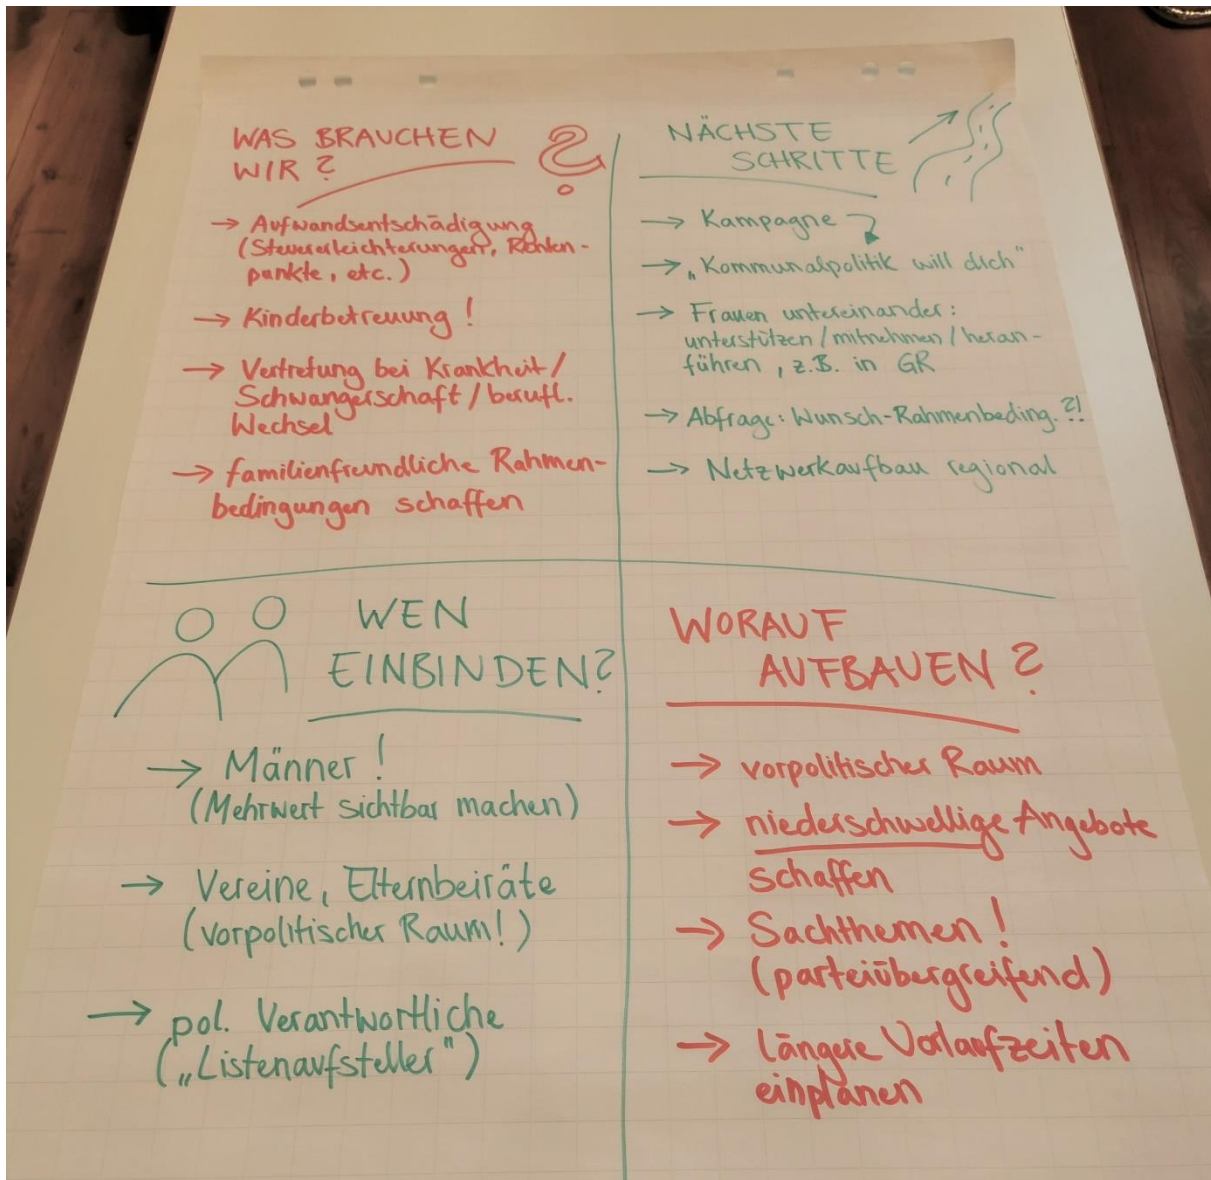 WAS BRAUCHEN
WIR?
→ Aufwandsentschädigung
(Steuererleichterungen, Renten-
punkte, etc.)
→ Kinderbetreuung!
→ Vertretung bei Krankheit/
Schwangerschaft/berufl.
Wechsel
→ familienfreundliche Rahmen-
bedingungen schaffen
NÄCHSTE
SCHRITTE
→ Kampagne
→ „Kommunalpolitik will dich"
→ Frauen untereinander:
unterstützen/mitnehmen/heran-
führen, z.B. in GR
→ Abfrage: Wunsch-Rahmenbeding.?!
→ Netzwerkaufbau regional
WEN
EINBINDEN?
→ Männer!
(Mehrwert sichtbar machen)
→ Vereine, Elternbeiräte
(vorpolitischer Raum!)
→ pol. Verantwortliche
(„Listenaufsteller")
WORAUF
AUFBAUEN?
→ vorpolitischer Raum
→ niederschwellige Angebote
schaffen
→ Sachthemen!
(parteiübergreifend)
→ längere Vorlaufzeiten
einplanen